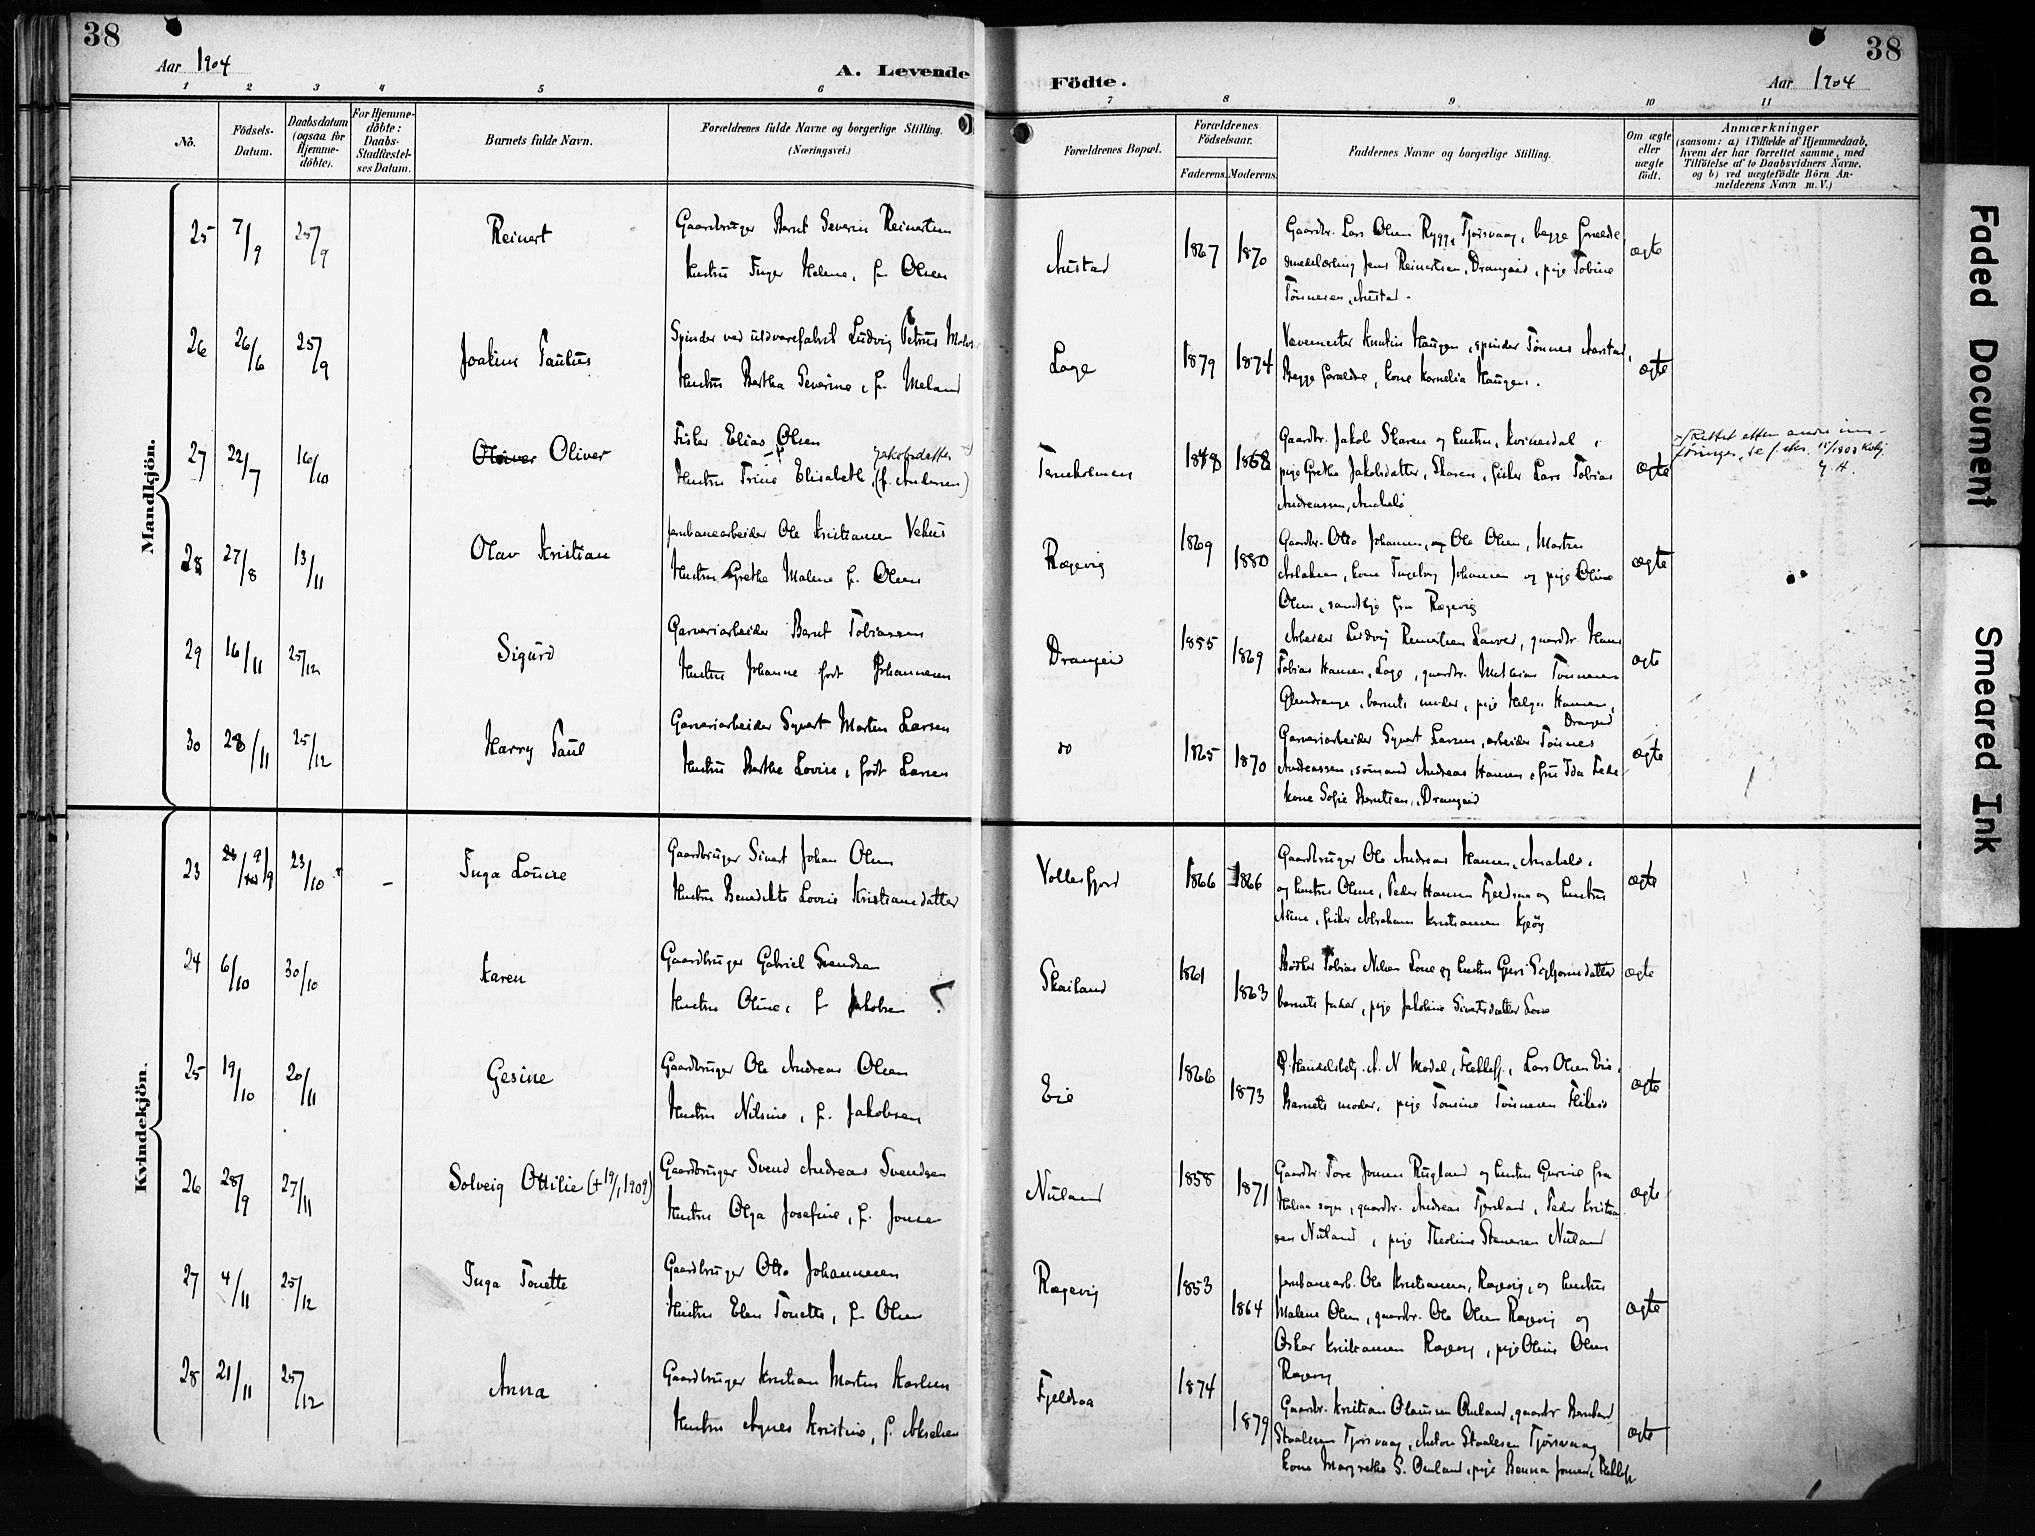 38
Aar 1904
A. Levende
Födte.
Aar 1904
38
1 2 3 4 5 6 7 8 9 10 11
No.
Födsels-
Datum.
Daabsdatum
(ogsaa for
Hjemme-
döbte).
For Hjemme-
döbte:
Daabs-
Stadfæstel-
ses Datum.
Barnets fulde Navn.
Forældrenes fulde Navne og borgerlige Stilling.
(Næringsvei.)
Forældrenes Bopæl.
Forældrenes
Födselsaar.
Faderens. Moderens.
Faddernes Navne og borgerlige Stilling.
Om ægte
eller
uægte
födt.
Anmærkninger
(saasom: a) i Tilfælde af Hjemmedaab,
hvem der har forrettet samme, med
Tilföielse af to Daabsvidners Navne,
og b) ved uægtefödte Börn An-
melderens Navn m. V.)
Mandkjön.
25 7/9 25/9 Reinert
Gaardbruger Bernt Severin Reinertsen
Hustru Inger Helene, f. Olsen
Austad 1867 1870
Gaardbr. Lars Olsen Rygg, Tjörsvaag, begge forældre
smedelærling Jens Reinertsen, Drangeid, pige Tobine
Tönnesen, Austad.
ægte
26 26/6 25/9 Joakim Paulus
Spinder ved uldvarefabrik Ludvig Petrus
Hustru Bertha Severine, f. Meland
Loge 1879 1874
Vævemester Haugen, spinder Tönnes
Begge forældre, kone Kornelia Haugen.
ægte
27 22/7 16/10 Oliver Oliver
Fisker Elias Olsen
Hustru Trine Elisabeth Jakobsdatter (f. Andersen)
1848 1858
Gaardbr. Jakob Skaren og hustru, Kvinesdal,
pige Grethe Jakobsdatter, Skaren, fisker Lars Tobias
Andreassen, Anabelö
ægte
Rettet efter andre inn-
föringer, se f.eks.
28 27/8 13/11 Olav Kristian
Jernbanearbeider Ole Kristiansen Vehus
Hustru Grethe Malene f. Olsen
Rægevig 1869 1880
Gaardbr. Otto Johannesen, og Ole Olsen, Morten
Aslaksen, kone Ingeborg Johannesen og pige Oline
Olsen, samtlige fra Rægevig
ægte
29 16/11 25/12 Sigurd
Garveriarbeider Bernt Tobiassen
Hustru Johanne födt Johannesen
Drangeid 1855 1869
Arbeider Ludvig Reinertsen Lauved, gaardbr. Hans
Tobias Hansen, Loge, gaardbr. Mathias Tönnesen
Glendrange, barnets moder, pige Helga Hansen,
Drangeid
ægte
30 28/11 25/12 Harry Paul
Garveriarbeider Syvert Martin Larsen
Hustru Berthe Lovise, födt Larsen
do 1865 1870
Garveriarbeider Syvert Larsen, arbeider Tönnes
Andreassen, sömand Andreas Hansen, fru Ida
kone Sofie Berntsen, Drangeid
ægte
Kvindekjön.
23 9/9 23/10 Inga Louise
Gaardbruger Sivert Johan Olsen
Hustru Benedikte Lovise Kristiansdatter
Vollesfjord 1866 1866
Gaardbruger Ole Andreas Hansen, Anabelö,
og hustru Oline, Peder Hansen Fjeldsaa og hustru
fisker Abraham Kristiansen
ægte
24 6/10 30/10 Karen
Gaardbruger Gabriel Svendsen
Hustru Oline, f. Jakobsen
Skailand 1861 1863
Bödker Tobias Nilsen Lone og hustru Guri
barnets fader, pige Jakobine Sivertsdatter Lone
ægte
25 19/10 20/11 Gesine
Gaardbruger Ole Andreas Olsen
Hustru Nilsine, f. Jakobsen
Eie 1866 1873
Handelsbetj. A. N. Modal, Flekkefj., Lars Olsen Eie,
Barnets moder, pige Tonsine Tönnesen
ægte
26 28/9 27/11 Solveig Ottilie (+ 19/1 1909)
Gaardbruger Svend Andreas Svendsen
Hustru Olga Josefine, f. Jonsen
Nuland 1858 1871
Gaardbr. Tore Jonsen Rugland og hustru Gurine fra
Halsaa sogn, gaardbr. Andreas Fjersland, Peder Kristian-
sen Nuland, pige Theoline Stenersen Nuland
ægte
27 4/11 25/12 Inga Tonette
Gaardbruger Otto Johannesen
Hustru Elen Tonette, f. Olsen
Rægevig 1853 1864
Jernbanearb. Ole Kristiansen, Rægevig, og hustru
Malene Olsen, gaardbr. Ole Olsen Rægevig og
Oskar Kristiansen Rægevig, pige Oline Olsen
Rægevig
ægte
28 21/11 25/12 Anna
Gaardbruger Kristian Martin Karlsen
Hustru Agnes Kristine, f. Akselsen
Fjeldsaa 1874 1879
Gaardbr. Kristian Olaussen Omland, gaardbr Bernhard
Staalesen Tjörsvaag, Anton Staalesen Tjörsvaag
kone Margrethe S. Omland, pige Benna Jonsen, Flekkefj
ægte
Faded Document
Smeared Ink